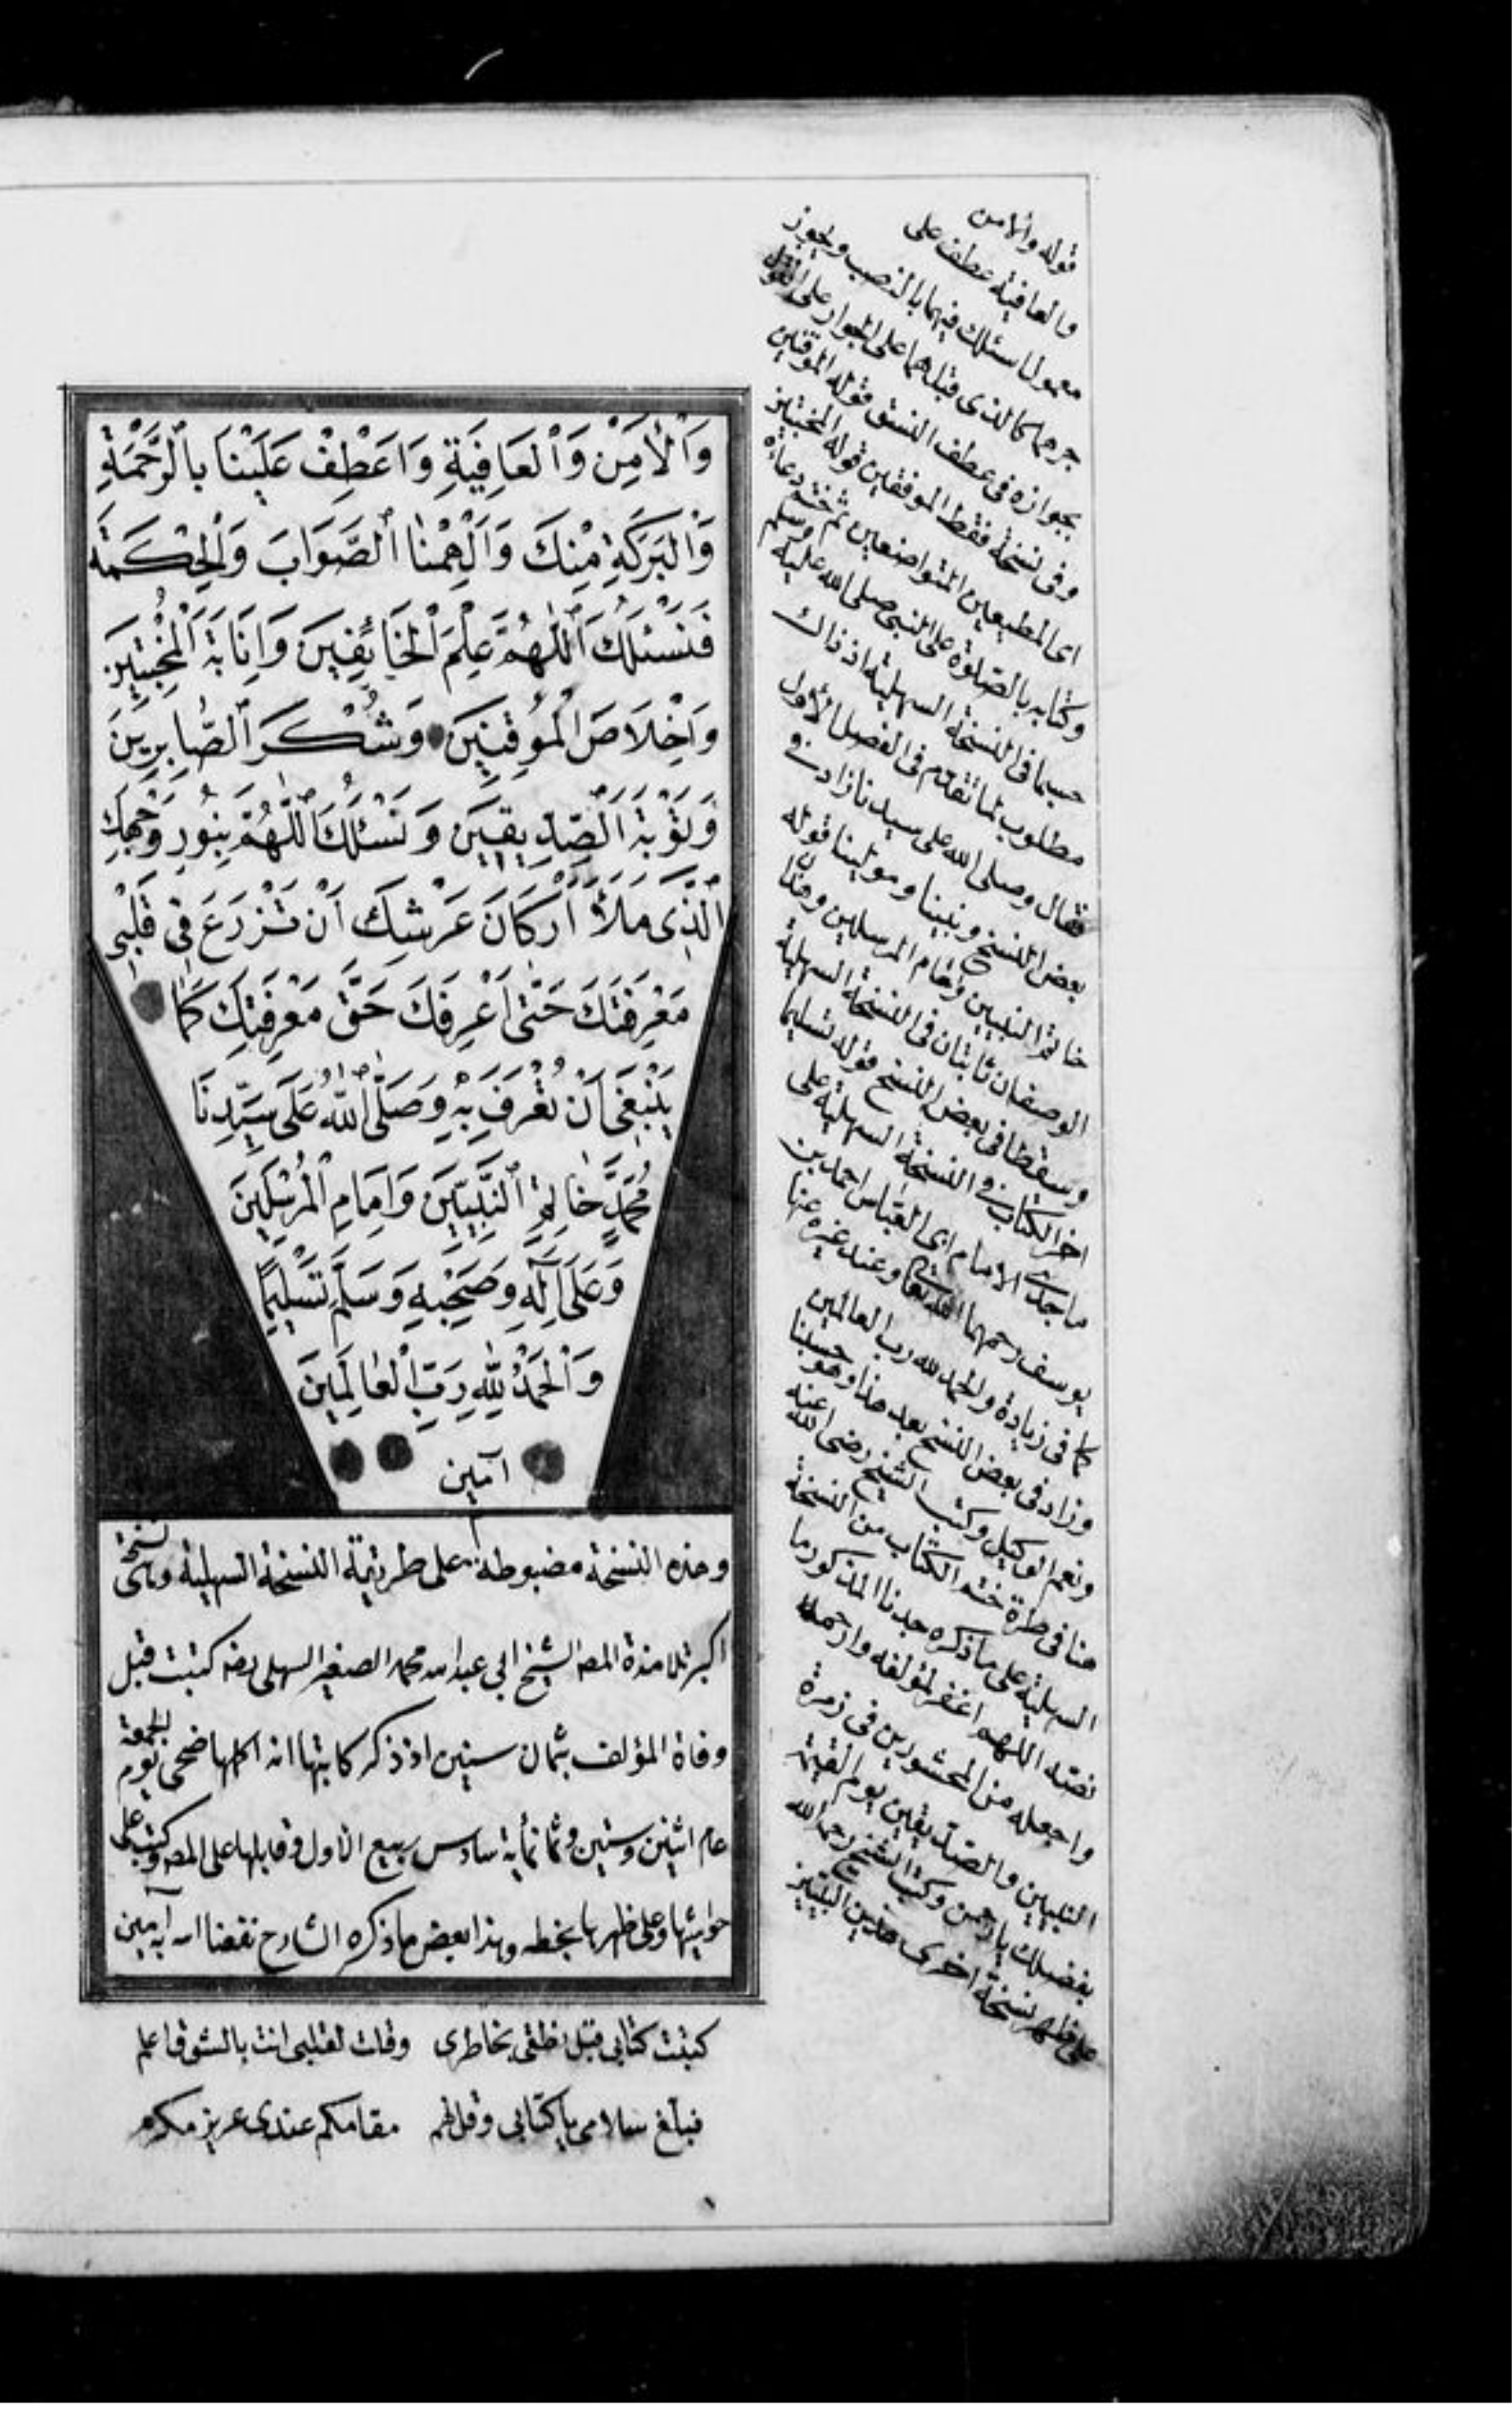 وَالْأَمْنِ وَالْعَافِيَةِ وَاعْطِفْ عَلَيْنَا بِالرَّحْمَةِ
وَالْبَرَكَةِ مِنْكَ وَأَلْهِمْنَا الصَّوَابَ وَالْحِكْمَةَ
فَنَسْئَلُكَ اللّٰهُمَّ عِلْمَ الْخَائِفِينَ وَإِنَابَةَ الْمُخْبِتِينَ
وَإِخْلَاصَ الْمُوقِنِينَ وَشُكْرَ الصَّابِرِينَ
وَتَوْبَةَ الصِّدِّيقِينَ وَنَسْئَلُكَ اللّٰهُمَّ بِنُورِ وَجْهِكَ
الَّذِي مَلَأَ أَرْكَانَ عَرْشِكَ أَنْ تَزْرَعَ فِي قَلْبِي
مَعْرِفَتَكَ حَتَّى أَعْرِفَكَ حَقَّ مَعْرِفَتِكَ كَمَا
يَنْبَغِي أَنْ تُعْرَفَ بِهِ وَصَلَّى اللّٰهُ عَلَى سَيِّدِنَا
مُحَمَّدٍ خَاتِمِ النَّبِيِّينَ وَإِمَامِ الْمُرْسَلِينَ
وَعَلَى آلِهِ وَصَحْبِهِ وَسَلَّمَ تَسْلِيمًا
وَالْحَمْدُ لِلّٰهِ رَبِّ الْعَالَمِينَ
آمين
وهذه النسخة مضبوطة على طريقة النسخة السهلية وهى نسخة
اكبر تلامذة المصـ الشيخ ابي عبد الله محمد الصغير السهلى رضـ كتبت قبل
وفاة المؤلف بثمان سنين اذ ذكر كاتبها انه اكملها ضحى يوم الجمعة
عام اثنين وستين وثمانمأية سادس ربيع الاول وقابلها على المصـ وكتب على
حواشيها وعلى ظهرها بخطه وهذا بعض ما ذكره الشارح نفعنا الله به آمين
كتبت كتابي قبل نطقى بخاطرى وقلت لقلبى انت بالشوق اعلم
فبلغ سلامى يا كتابى وقل لهم مقامكم عندى عزيز مكرم
قوله والامن
والعافية عطف على
معمول اسئلك فيهما بالنصب ويجوز
جرهما كالذى قبلهما على الجوار على القول
بجوازه فى عطف النسق قوله الموقنين
وفى نسخة فقط الموفقين قوله المخبتين
اى المطيعين المتواضعين ثم ختم دعاءه
وكتابه بالصلوة على النبى صلى الله عليه وسلم
حسبما فى النسخة السهلية اذ ذاك
مطلوب لما تقدم فى الفصل الأول
فقال وصلى الله على سيدنا زاد فى
بعض النسخ ونبينا ومولينا قوله
خاتم النبيين وامام المرسلين وهذان
الوصفان ثابتان فى النسخة السهلية
وسقطا فى بعض النسخ قوله تسليما
اخر الكتاب فى النسخة السهلية على
ما عند الامام ابى العباس احمد بن
يوسف رحمهما الله تعالى وعند غيره عنها
كما فى زيادة والحمد لله رب العالمين
وزاد فى بعض النسخ بعد هذا وهو حسبنا
ونعم الوكيل وكتب الشيخ رضى الله عنه
هنا فى طرة ختم الكتاب من النسخة
السهلية على ما ذكره جدنا المذكور ما
نصه اللهم اغفر لمؤلفه وارحمه
واجعله من المحشورين فى زمرة
النبيين والصديقين يوم القيمة
بفضلك يا رحمن وكتب الشيخ رحمه الله
على ظهر نسخة اخرى هذين البيتين